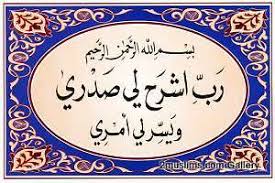 بِسْمِ اللهِ الرَّحْمٰنِ الرَّحِيْمِ
رَبِّ اشْرَحْ لِي صَدْرِي
وَيَسِّرْ لِي أَمْرِي
2muslims.com Gallery